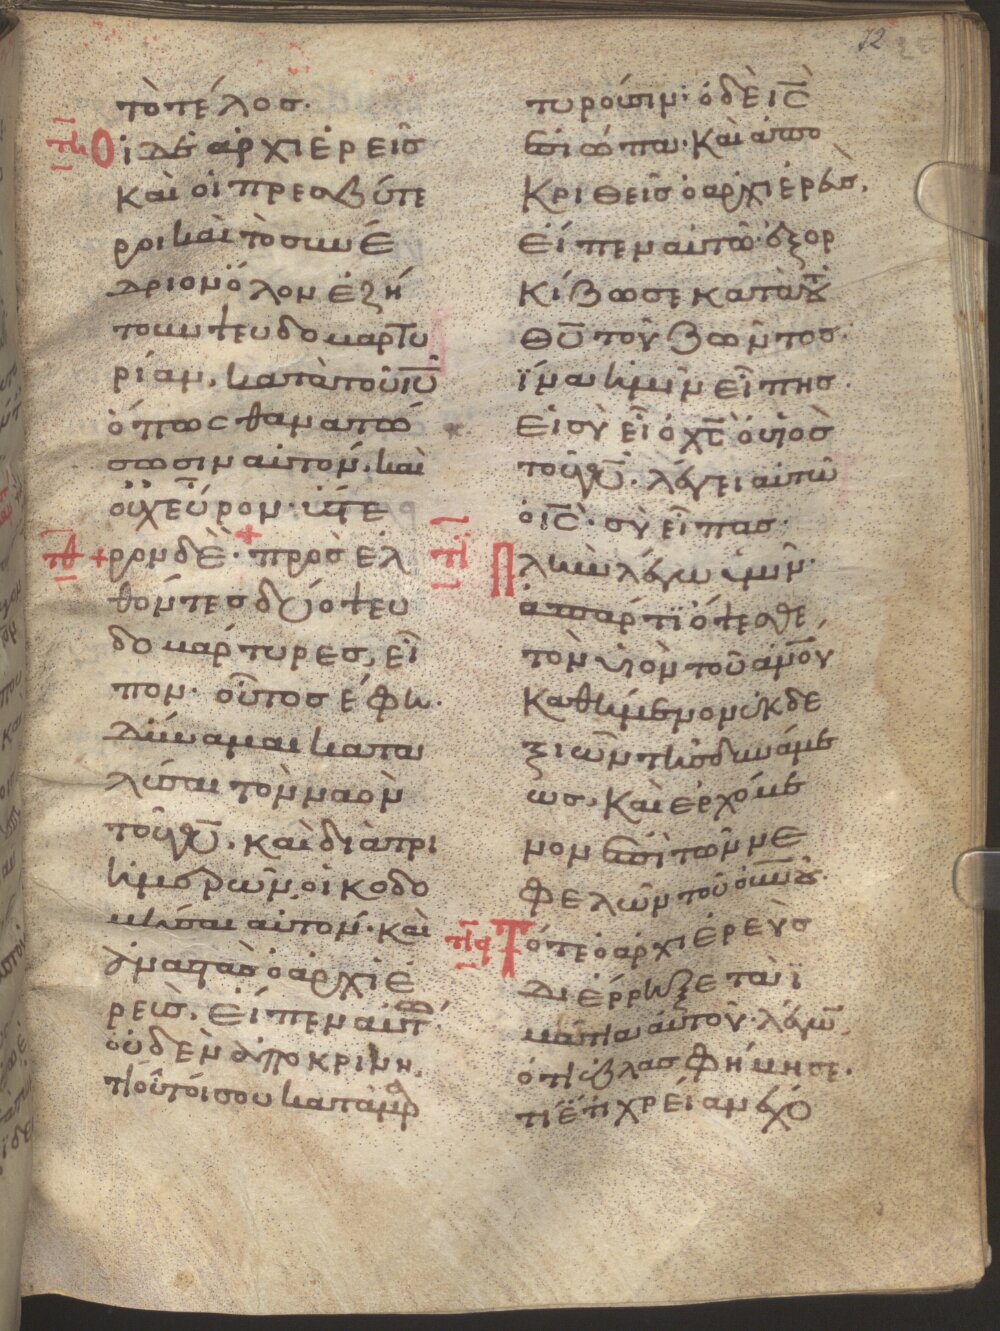 12
τὸ τέλοσ·
Οἱ δὲ ἀρχιερεῖσ
Καὶ οἱ πρεσβύτε
ροι καὶ τὸ συνέ
δριον ὅλον ἐζή
τουν ψευδομαρτυ
ρίαν, κατὰ τοῦ ιῦ
ὅπως θανατώ
σωσιν αὐτόν, καὶ
οὐχ εὗρον·
+ρον δὲ· + προσελ
θόντεσ δύο ψευ
δομάρτυρεσ, εἶ
πον· οὗτοσ ἔφη·
Δύναμαι κατα
λύσαι τὸν ναὸν
τοῦ θυ, καὶ διὰ τρι
ῶν ἡμερῶν οἰκοδο
μῆσαι αὐτόν· καὶ
ἀναστὰσ ὁ ἀρχιε
ρεὺσ, εἶπεν αὐτ·
οὐδὲν ἀποκρίνη,
τί οὗτοί σου καταμρ
τυροῦσιν· ὁ δὲ ις
ἐσιώπα· Καὶ ἀπο
Κριθεὶσ ὁ ἀρχιερεὺσ,
εἶπεν αὐτῶ· ἐξορ
Κίζω σε κατὰ τοῦ
θυ τοῦ ζωντοσ·
ἵνα ἡμῖν εἴπησ·
εἰ σὺ εἶ ὁ χς ὁ υἱὸσ
τοῦ θυ· λέγει αὐτῶ
ὁ ις· σὺ εἶπασ·
Πλὴν λέγω ὑμῖν·
ἀπαρτὶ ὄψεσθε,
τὸν υἱὸν τοῦ ανου
Καθήμενον ἐκ δε
ξιῶν τῆσ δυνάμε
ωσ· Καὶ ἐρχόμε
νον ἐπὶ τῶν νε
φελῶν τοῦ ουνου·
Τότε ὁ ἀρχιερεὺσ
Διέρρηξε τὰ ἱ
μάτια αὐτοῦ· λέγων,
ὅτι ἐβλασφήμησε·
τί ἔτι χρείαν ἔχο